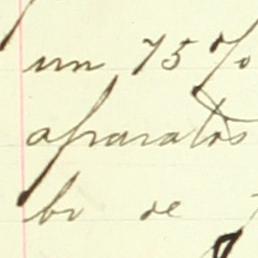 un 75%
aparatos
bi de